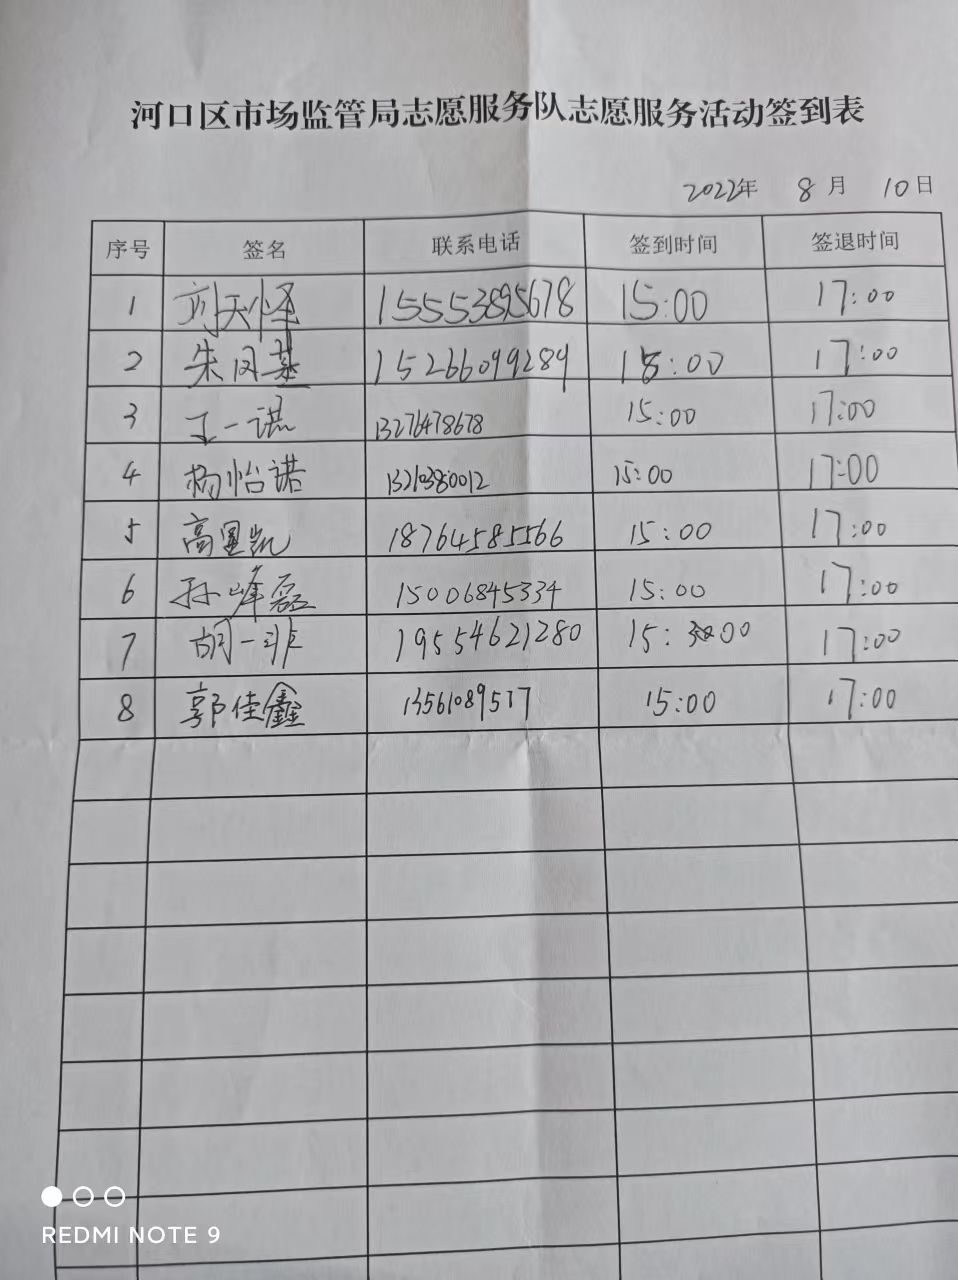 河口区市场监管局志愿服务队志愿服务活动签到表
2022年 8月 10日
序号 签名 联系电话 签到时间 签退时间
1 刘天怿 15553895678 15:00 17:00
2 朱冈基 15266099289 15:00 17:00
3 丁一诺 13276478678 15:00 17:00
4 杨怡诺 13210380012 15:00 17:00
5 高墨凯 18764585566 15:00 17:00
6 孙峰磊 15006845334 15:00 17:00
7 胡一非 19554621280 15:00 17:00
8 郭佳鑫 13561089517 15:00 17:00
REDMI NOTE 9